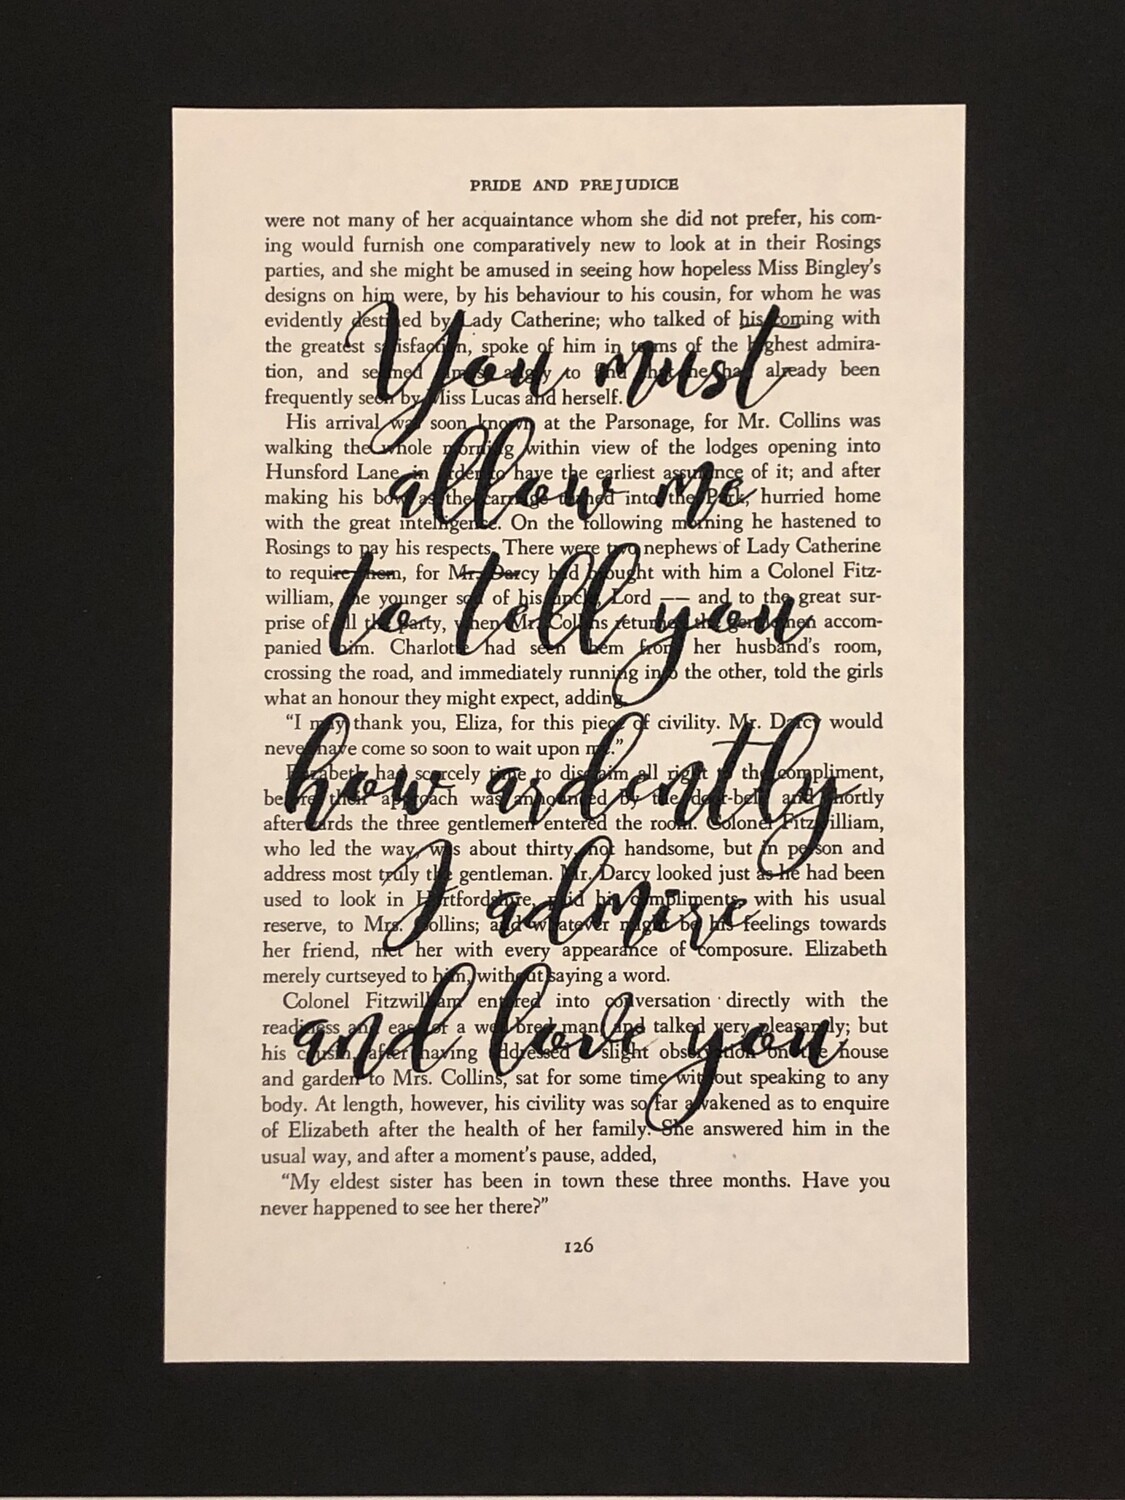 PRIDE AND PREJUDICE
were not many of her acquaintance whom she did not prefer, his com-
ing would furnish one comparatively new to look at in their Rosings
parties, and she might be amused in seeing how hopeless Miss Bingley's
designs on him were, by his behaviour to his cousin, for whom he was
evidently destined by Lady Catherine; who talked of his coming with
the greatest satisfaction, spoke of him in terms of the highest admira-
tion, and seemed almost angry to find that he had already been
frequently seen by Miss Lucas and herself.
His arrival was soon known at the Parsonage, for Mr. Collins was
walking the whole morning within view of the lodges opening into
Hunsford Lane, in order to have the earliest assurance of it; and after
making his bow as the carriage turned into the Park, hurried home
with the great intelligence. On the following morning he hastened to
Rosings to pay his respects. There were two nephews of Lady Catherine
to require them, for Mr. Darcy had brought with him a Colonel Fitz-
william, the younger son of his uncle, Lord —— and to the great sur-
prise of all the party, when Mr. Collins returned the gentlemen accom-
panied him. Charlotte had seen them from her husband's room,
crossing the road, and immediately running into the other, told the girls
what an honour they might expect, adding,
“I may thank you, Eliza, for this piece of civility. Mr. Darcy would
never have come so soon to wait upon me.”
Elizabeth had scarcely time to disclaim all right to the compliment,
before their approach was announced by the door-bell, and shortly
afterwards the three gentlemen entered the room. Colonel Fitzwilliam,
who led the way, was about thirty, not handsome, but in person and
address most truly the gentleman. Mr. Darcy looked just as he had been
used to look in Hertfordshire, paid his compliments, with his usual
reserve, to Mrs. Collins; and whatever might be his feelings towards
her friend, met her with every appearance of composure. Elizabeth
merely curtseyed to him, without saying a word.
Colonel Fitzwilliam entered into conversation directly with the
readiness and ease of a well-bred man, and talked very pleasantly; but
his cousin, after having addressed a slight observation on the house
and garden to Mrs. Collins, sat for some time without speaking to any
body. At length, however, his civility was so far awakened as to enquire
of Elizabeth after the health of her family. She answered him in the
usual way, and after a moment's pause, added,
“My eldest sister has been in town these three months. Have you
never happened to see her there?”
126
You must
allow me
to tell you
how ardently
I admire
and love you